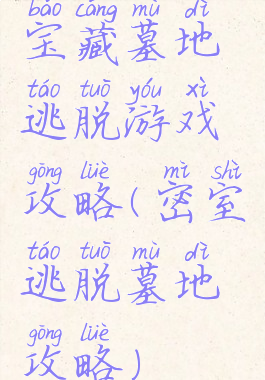 bǎo cáng mù dì
宝藏墓地
táo tuō yóu xì
逃脱游戏
gōng lüè mì shì
攻略(密室
táo tuō mù dì
逃脱墓地
gōng lüè
攻略)